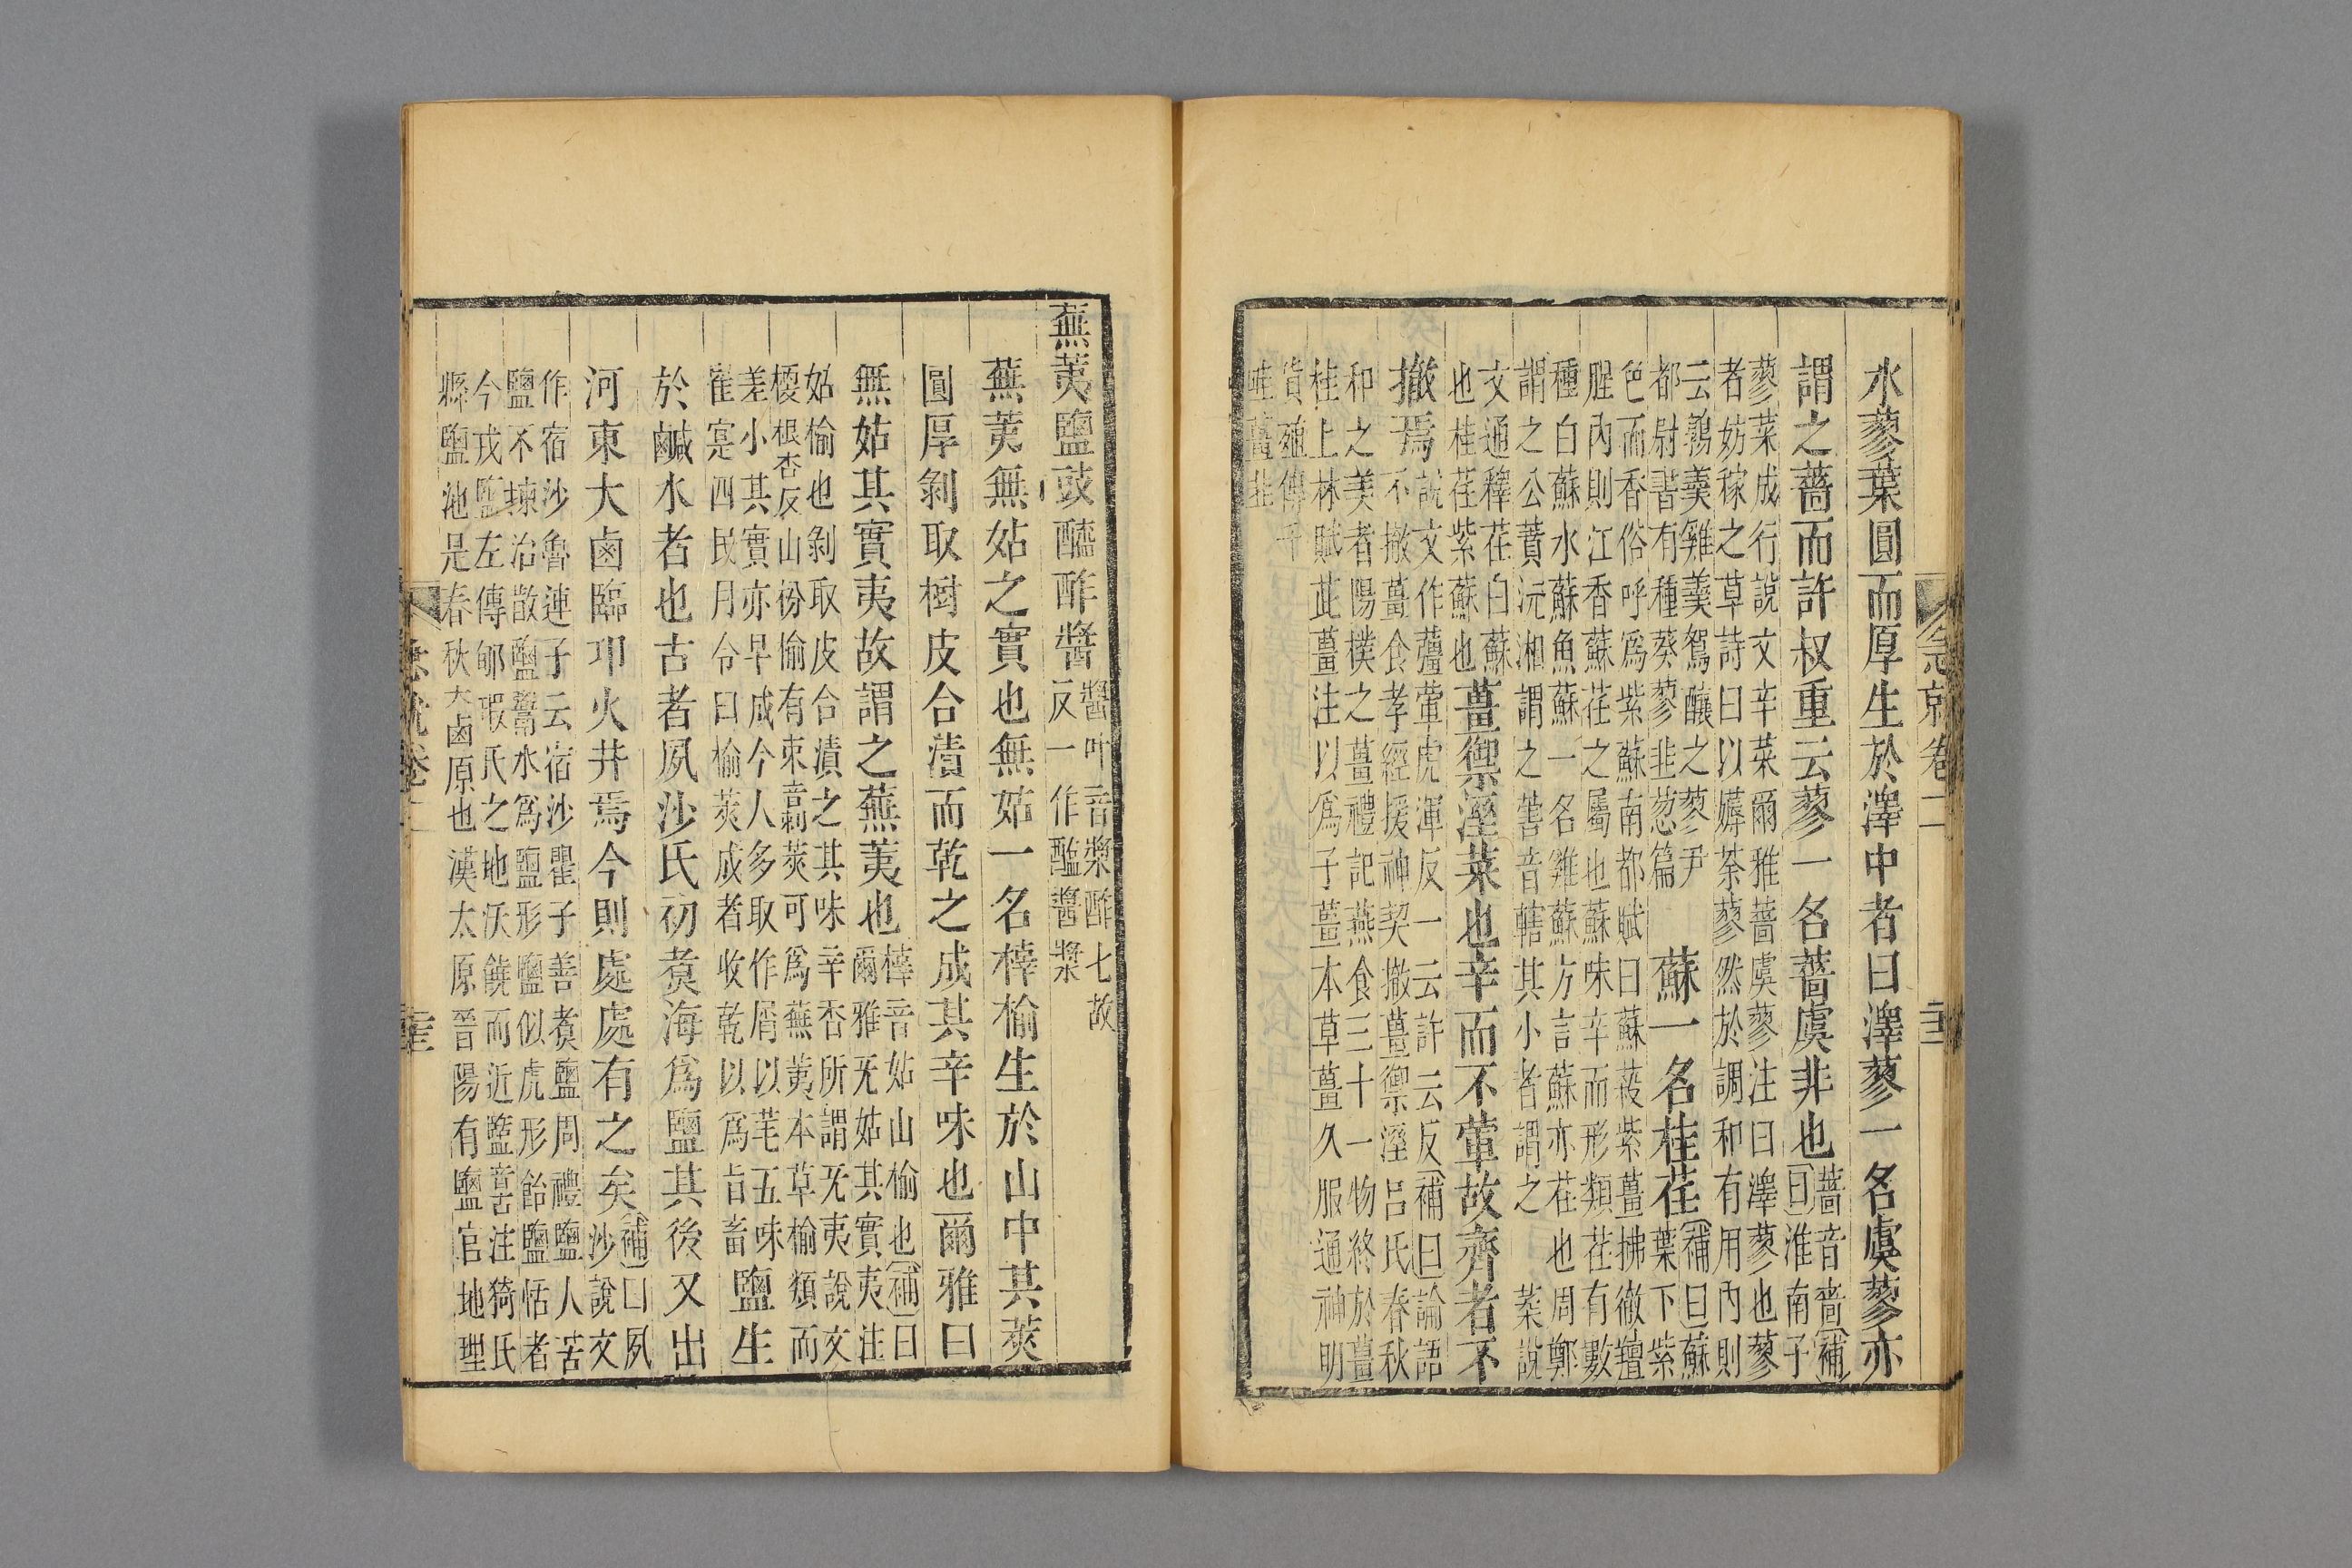 卷二
水蓼葉圓而厚生於澤中者曰澤蓼一名虞蓼亦
謂之薔而許叔重云蓼一名薔虞非也
薔音嗇補
曰淮南子
蓼菜成行說文辛菜爾雅薔虞蓼注曰澤蓼也蓼
者妨稼之草詩曰以薅荼蓼然於調和有用內則
云鶉羹雞羹鴽釀之蓼尹
都尉書有種葵蓼韭葱篇
蘇一名桂荏
補曰蘇
葉下紫
色而香俗呼爲紫蘇南都賦曰蘇蔱紫薑拂徹羶
腥內則江香蘇荏之屬也蘇味辛而形類荏有數
種白蘇水蘇魚蘇一名雞蘇方言蘇亦荏也周鄭
謂之公蕡沅湘謂之音轄其小者謂之葇說
文通釋荏白蘇
也桂荏紫蘇也
薑禦溼菜也辛而不葷故齊者不
撤焉
說文作薑葷虎渾反一云許云反補曰論語
不撤薑食孝經援神契撤薑禦溼呂氏春秋
和之美者陽樸之薑禮記燕食三十一物終於薑
桂上林賦茈薑注以爲子薑本草薑久服通神明
貨殖傳千
畦薑韭
蕪荑鹽豉醯酢醬
醬叶音漿酢七故
反一作醯醬漿
蕪荑無姑之實也無姑一名樟榆生於山中其莢
圓厚剝取樹皮合漬而乾之成其辛味也爾雅曰
無姑其實夷故謂之蕪荑也
樟音姑山榆也補曰
爾雅无姑其實夷注
姑榆也剝取皮合漬之其味辛香所謂无夷說文
梗根杏反山枌榆有朿音刺莢可爲蕪荑本草榆類而
差小其實亦早成今人多取作屑以芼五味
崔寔四民月令曰榆莢成者收乾以爲旨畜
鹽生
於鹹水者也古者夙沙氏初煑海爲鹽其後又出
河東大鹵臨卭火井焉今則處處有之矣
補曰夙
沙說文
作宿沙魯連子云宿沙瞿子善煑鹽周禮鹽人苦
鹽不湅治散鹽鬻水爲鹽形鹽似虎形飴鹽恬者
今戎鹽左傳郇瑕氏之地沃饒而近盬音古注猗氏
縣鹽池是春秋大鹵原也漢太原晉陽有鹽官地理